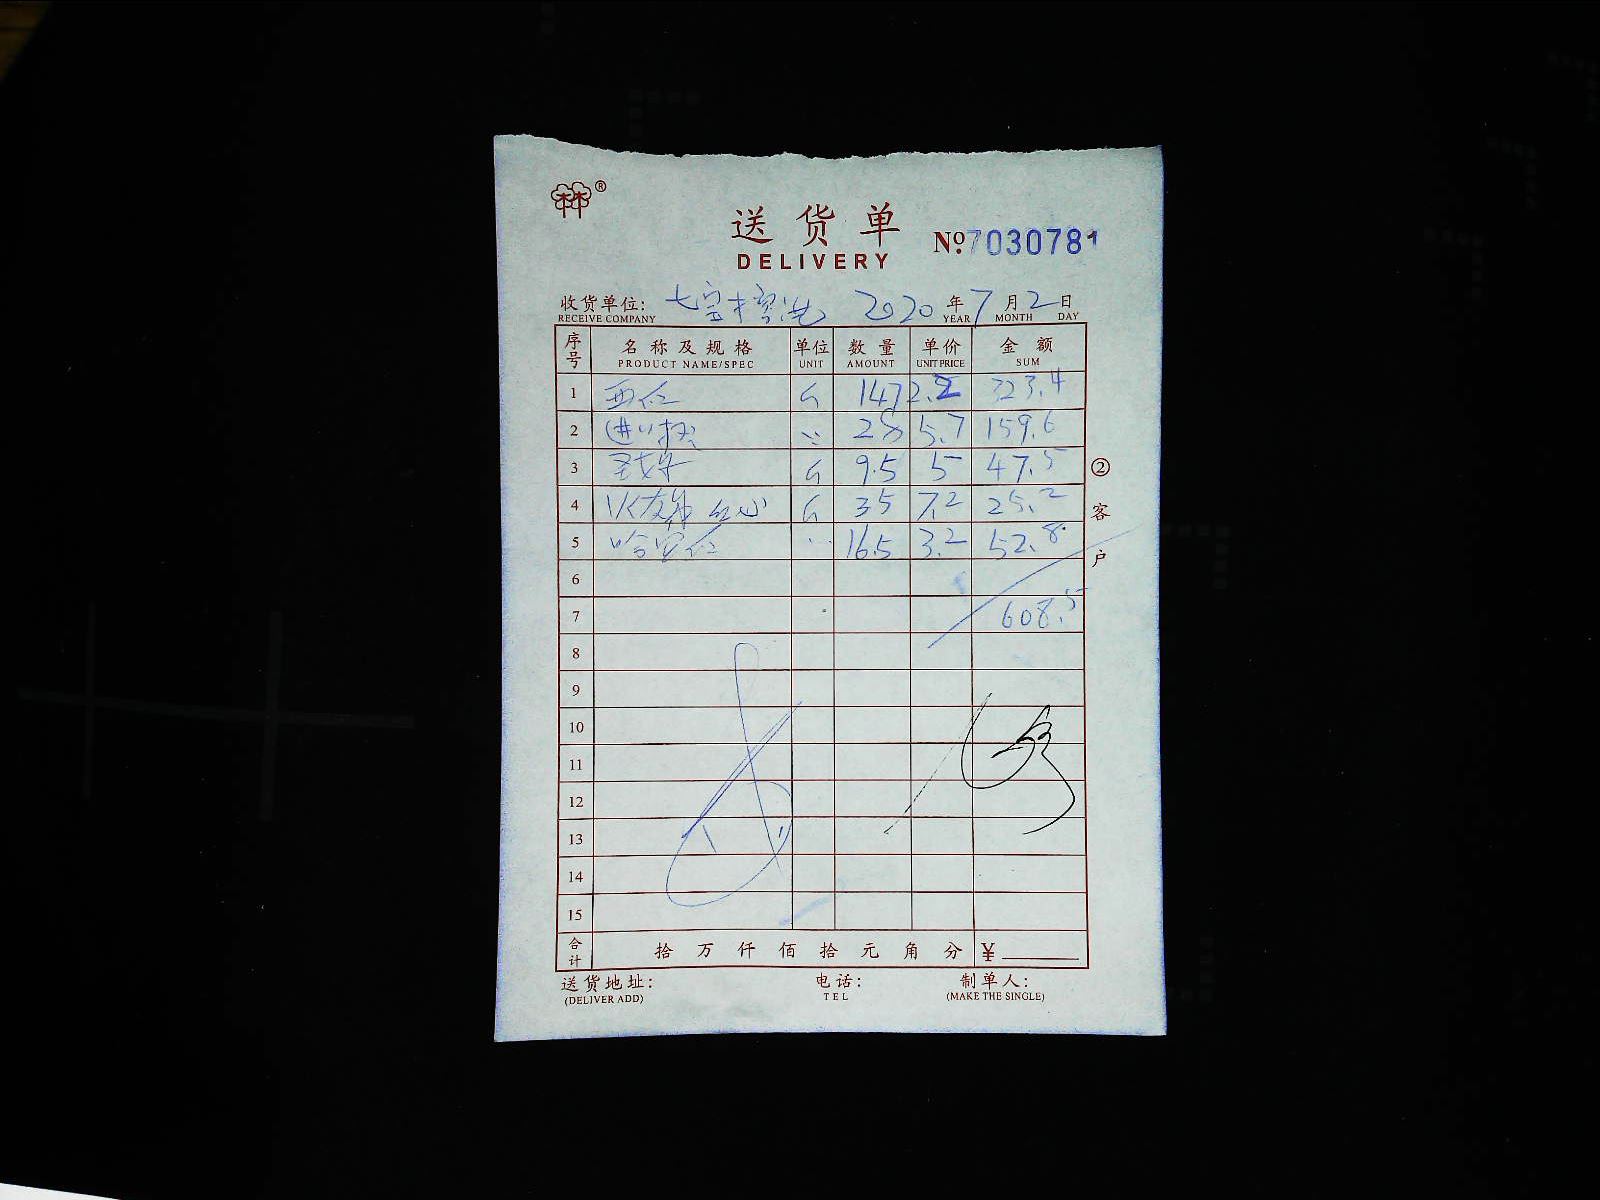 林®
送货单
DELIVERY
№7030781
收货单位: 七宝 2020年7月2日
RECEIVE COMPANY YEAR MONTH DAY
序号 名称及规格 单位 数量 单价 金额
PRODUCT NAME/SPEC UNIT AMOUNT UNIT PRICE SUM
1 西 147 2.2 323.4
2 进口 28 5.7 159.6
3 圣女果 9.5 5 47.5
4 火龙果 红心 35 7.2 25.2
5 哈密 16.5 3.2 52.8
6
7 608.5
8
9
10
11
12
13
14
15
合计 拾万仟佰拾元角分 ¥
②客户
送货地址: 电话: 制单人:
(DELIVER ADD) TEL (MAKE THE SINGLE)